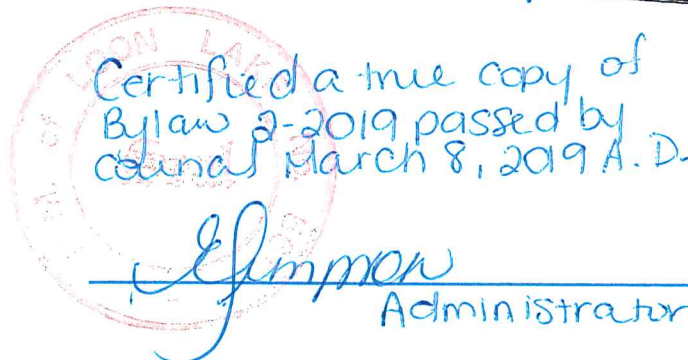 LOON LAKE
Certified a true copy of
Bylaw 2-2019 passed by
council March 8, 2019 A.D.
Administrator